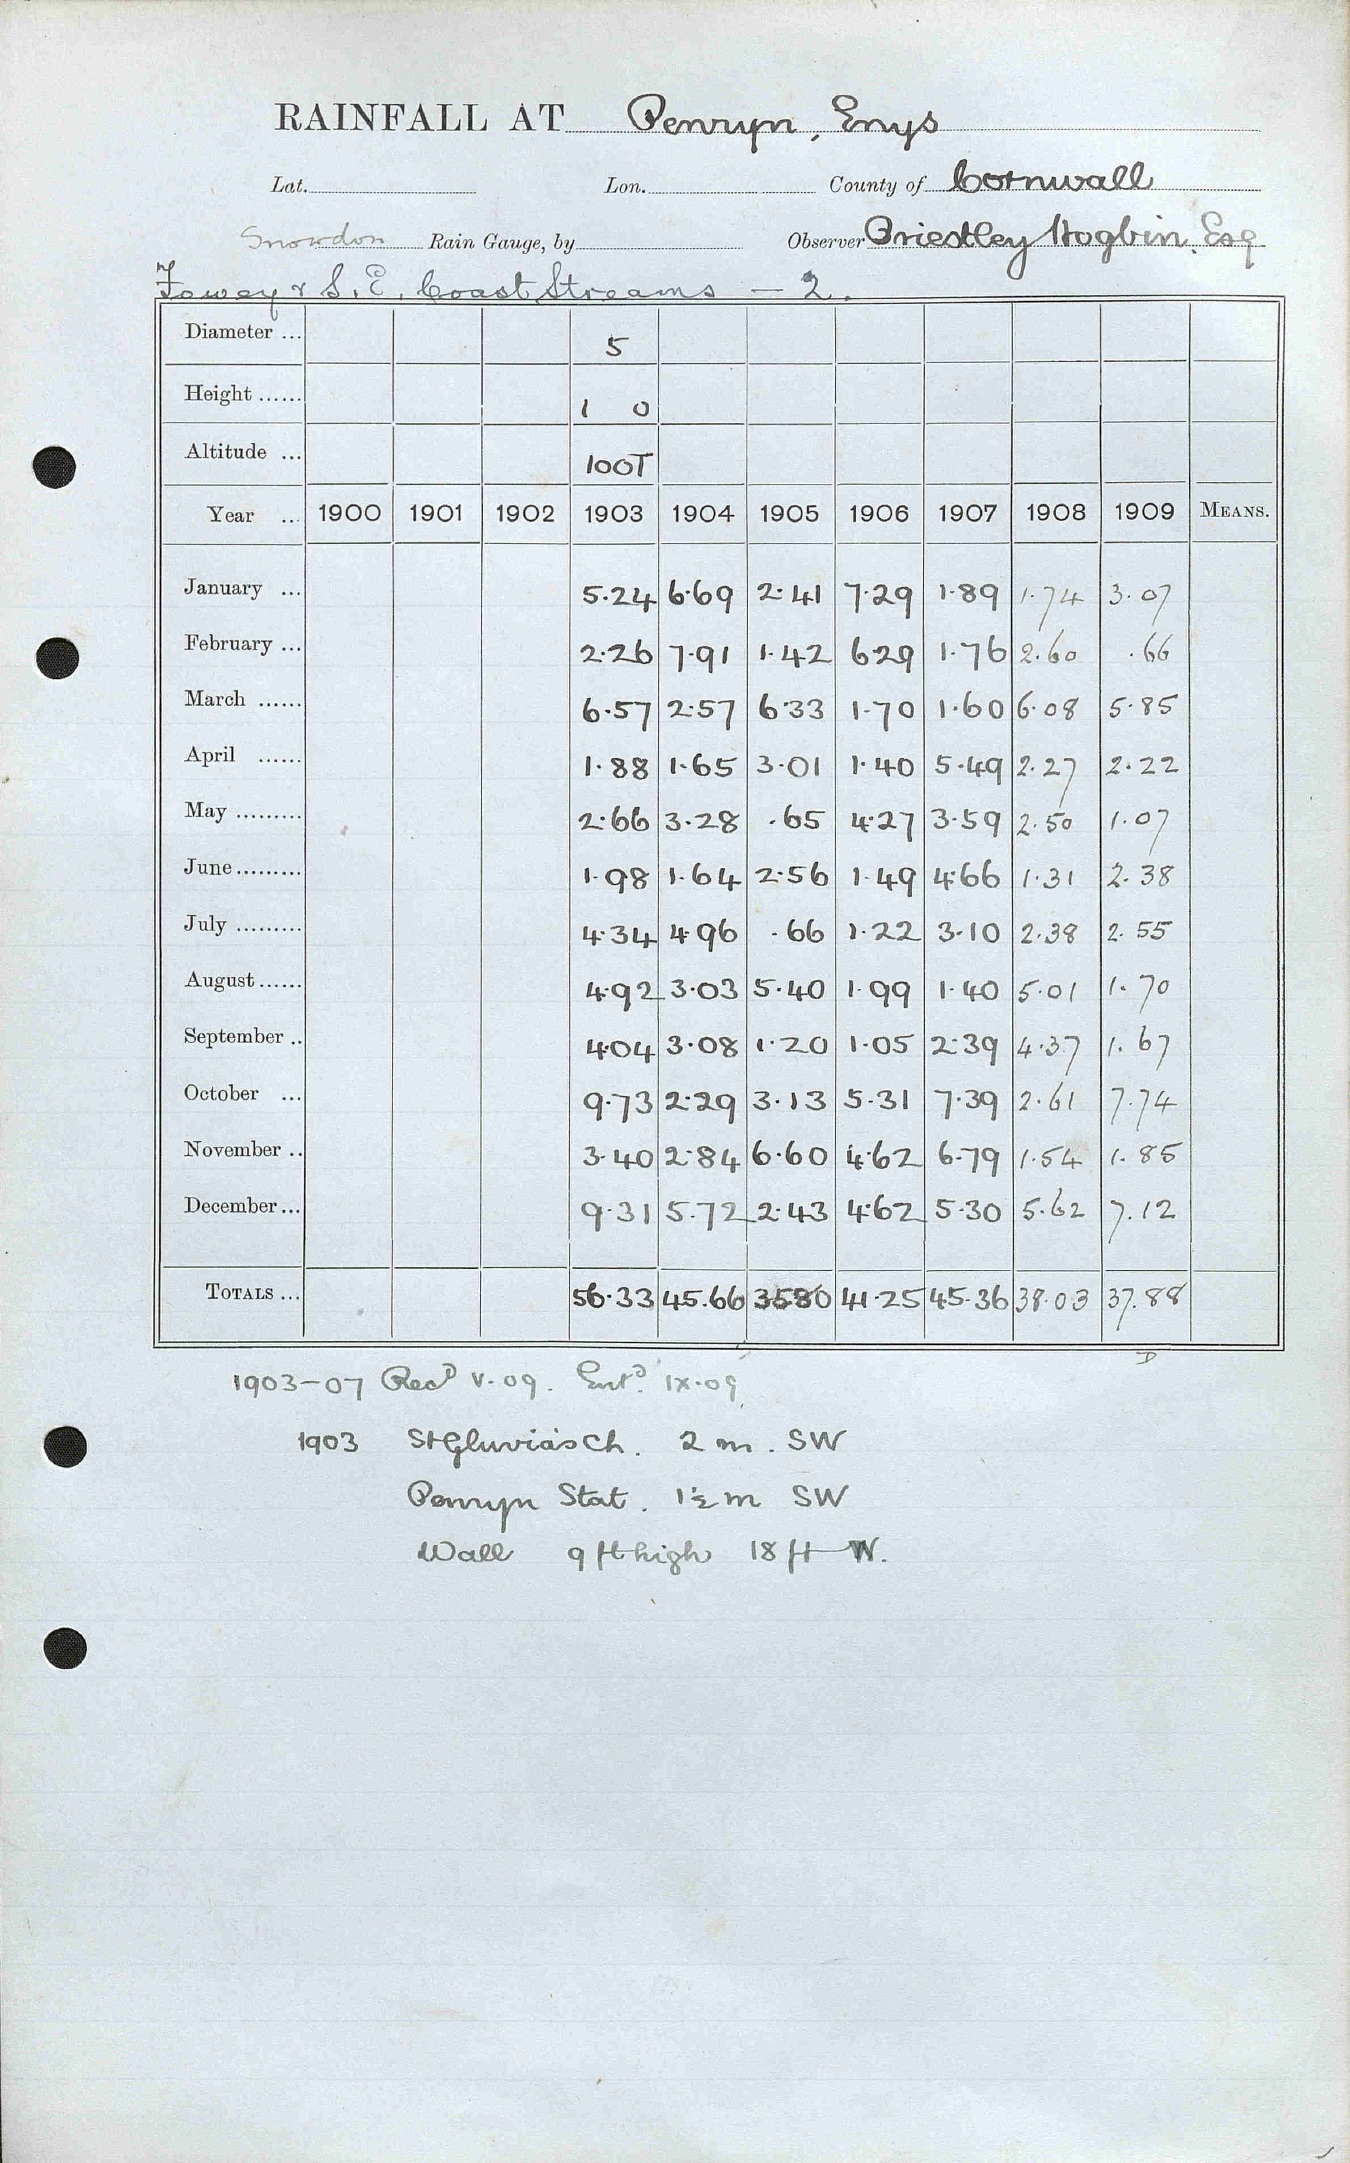 RAINFALL AT Penryn, Enys
Lat. Lon. County of Cornwall
Snowdon Rain Gauge, by Observer Priestley Hogbin, Esq
Fowey & S.E. Coast Streams — 2.
Diameter ... 5
Height ...... 1 0
Altitude ... 100T
Year ... 1900 1901 1902 1903 1904 1905 1906 1907 1908 1909 MEANS.
January ... 5.24 6.69 2.41 7.29 1.89 1.74 3.07
February ... 2.26 7.91 1.42 6.29 1.76 2.60 .66
March ...... 6.57 2.57 6.33 1.70 1.60 6.08 5.85
April ...... 1.88 1.65 3.01 1.40 5.49 2.27 2.22
May ......... 2.66 3.28 .65 4.27 3.59 2.50 1.07
June ......... 1.98 1.64 2.56 1.49 4.66 1.31 2.38
July ......... 4.34 4.96 .66 1.22 3.10 2.38 2.55
August ...... 4.92 3.03 5.40 1.99 1.40 5.01 1.70
September .. 4.04 3.08 1.20 1.05 2.39 4.37 1.67
October ... 9.73 2.29 3.13 5.31 7.39 2.61 7.74
November .. 3.40 2.84 6.60 4.62 6.79 1.54 1.85
December ... 9.31 5.72 2.43 4.62 5.30 5.62 7.12
TOTALS ... 56.33 45.66 35.80 41.25 45.36 38.03 37.88
D
1903-07 Recd V.09. Entd. IX.09
1903 St Gluvias Ch. 2 m. SW
Penryn Stat. 1½ m SW
Wall 9 ft high 18 ft W.